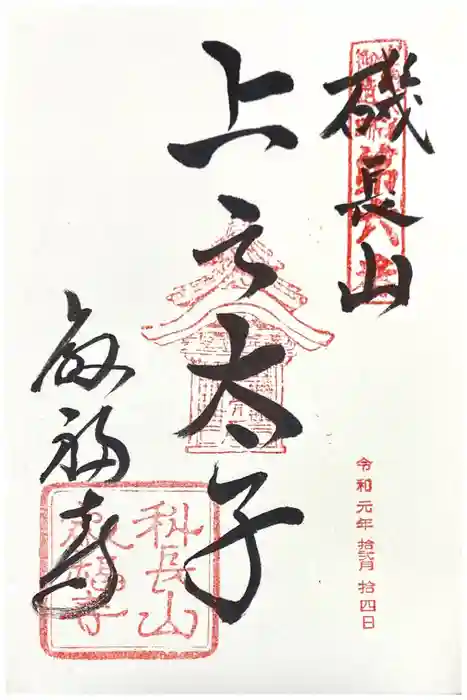 磯長山
上之太子
叡福寺
令和元年 拾弐月 拾四日
科長山
叡福寺